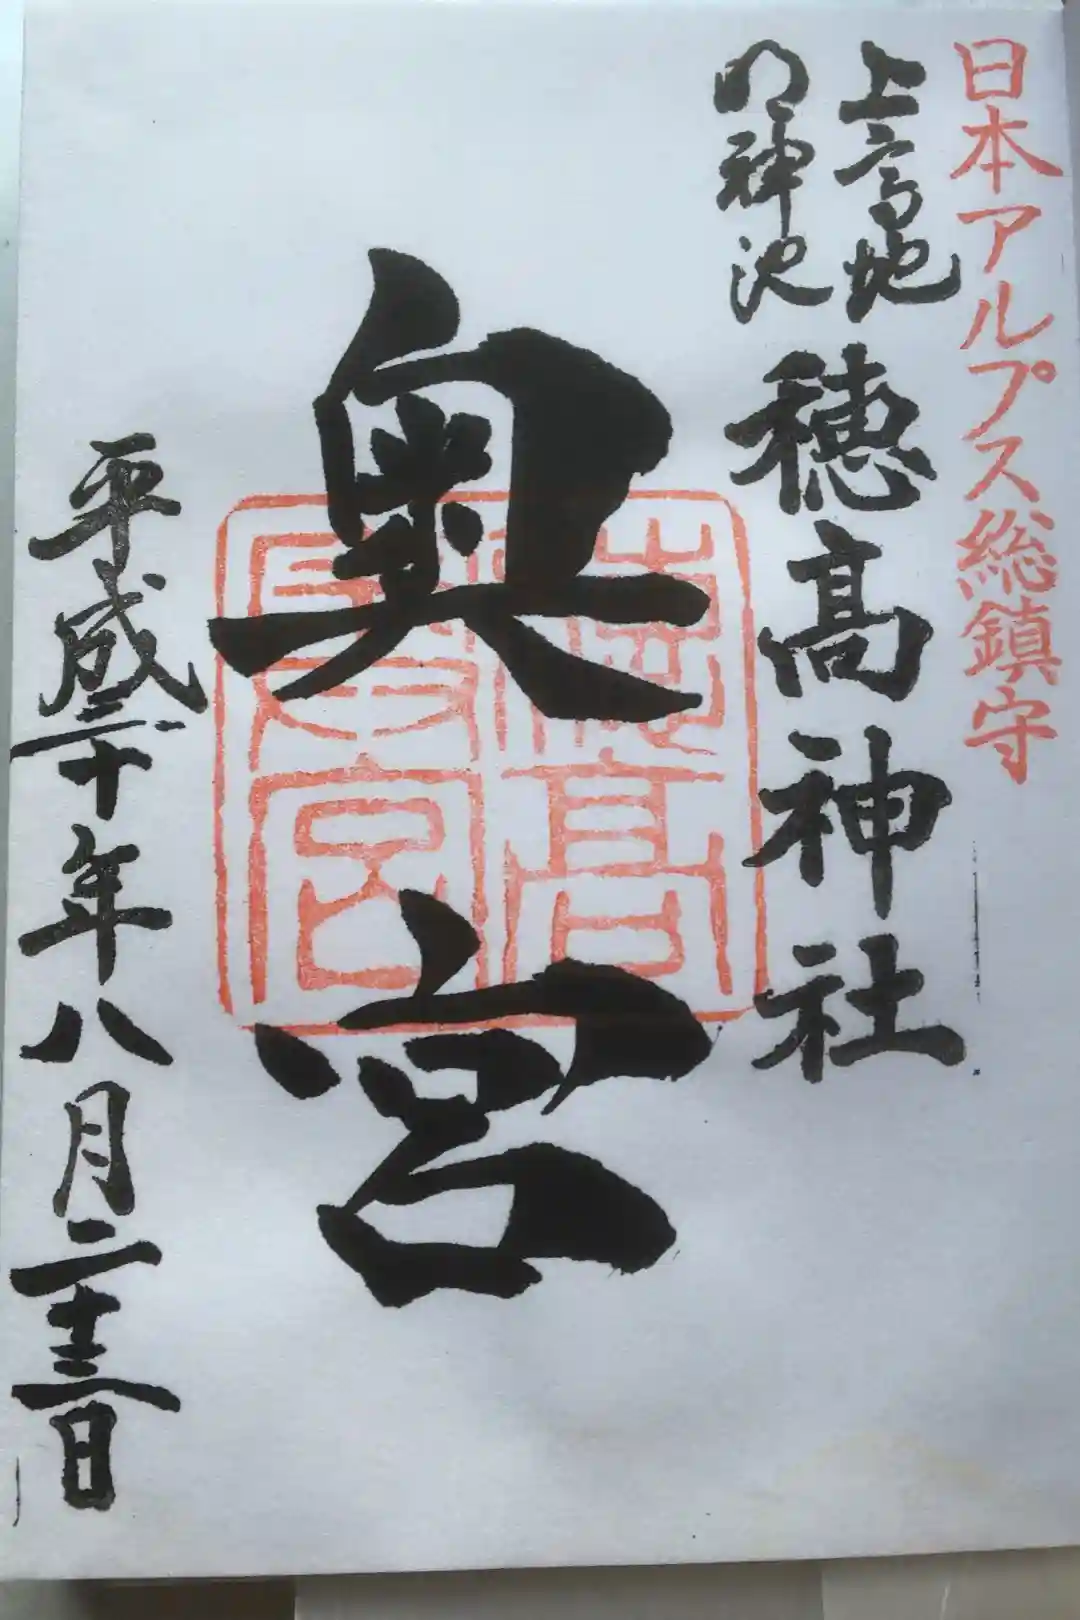 日本アルプス総鎮守
上高地
明神池
穂高神社
奥宮
穂高
奥宮
平成三十年八月二十三日